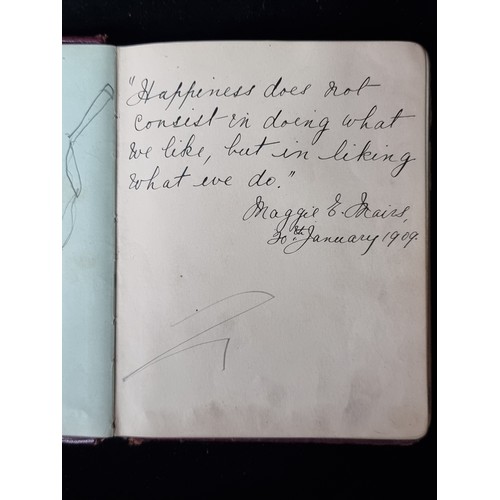 "Happiness does not
consist in doing what
we like, but in liking
what we do."
Maggie E. Mairs,
30th January 1909.